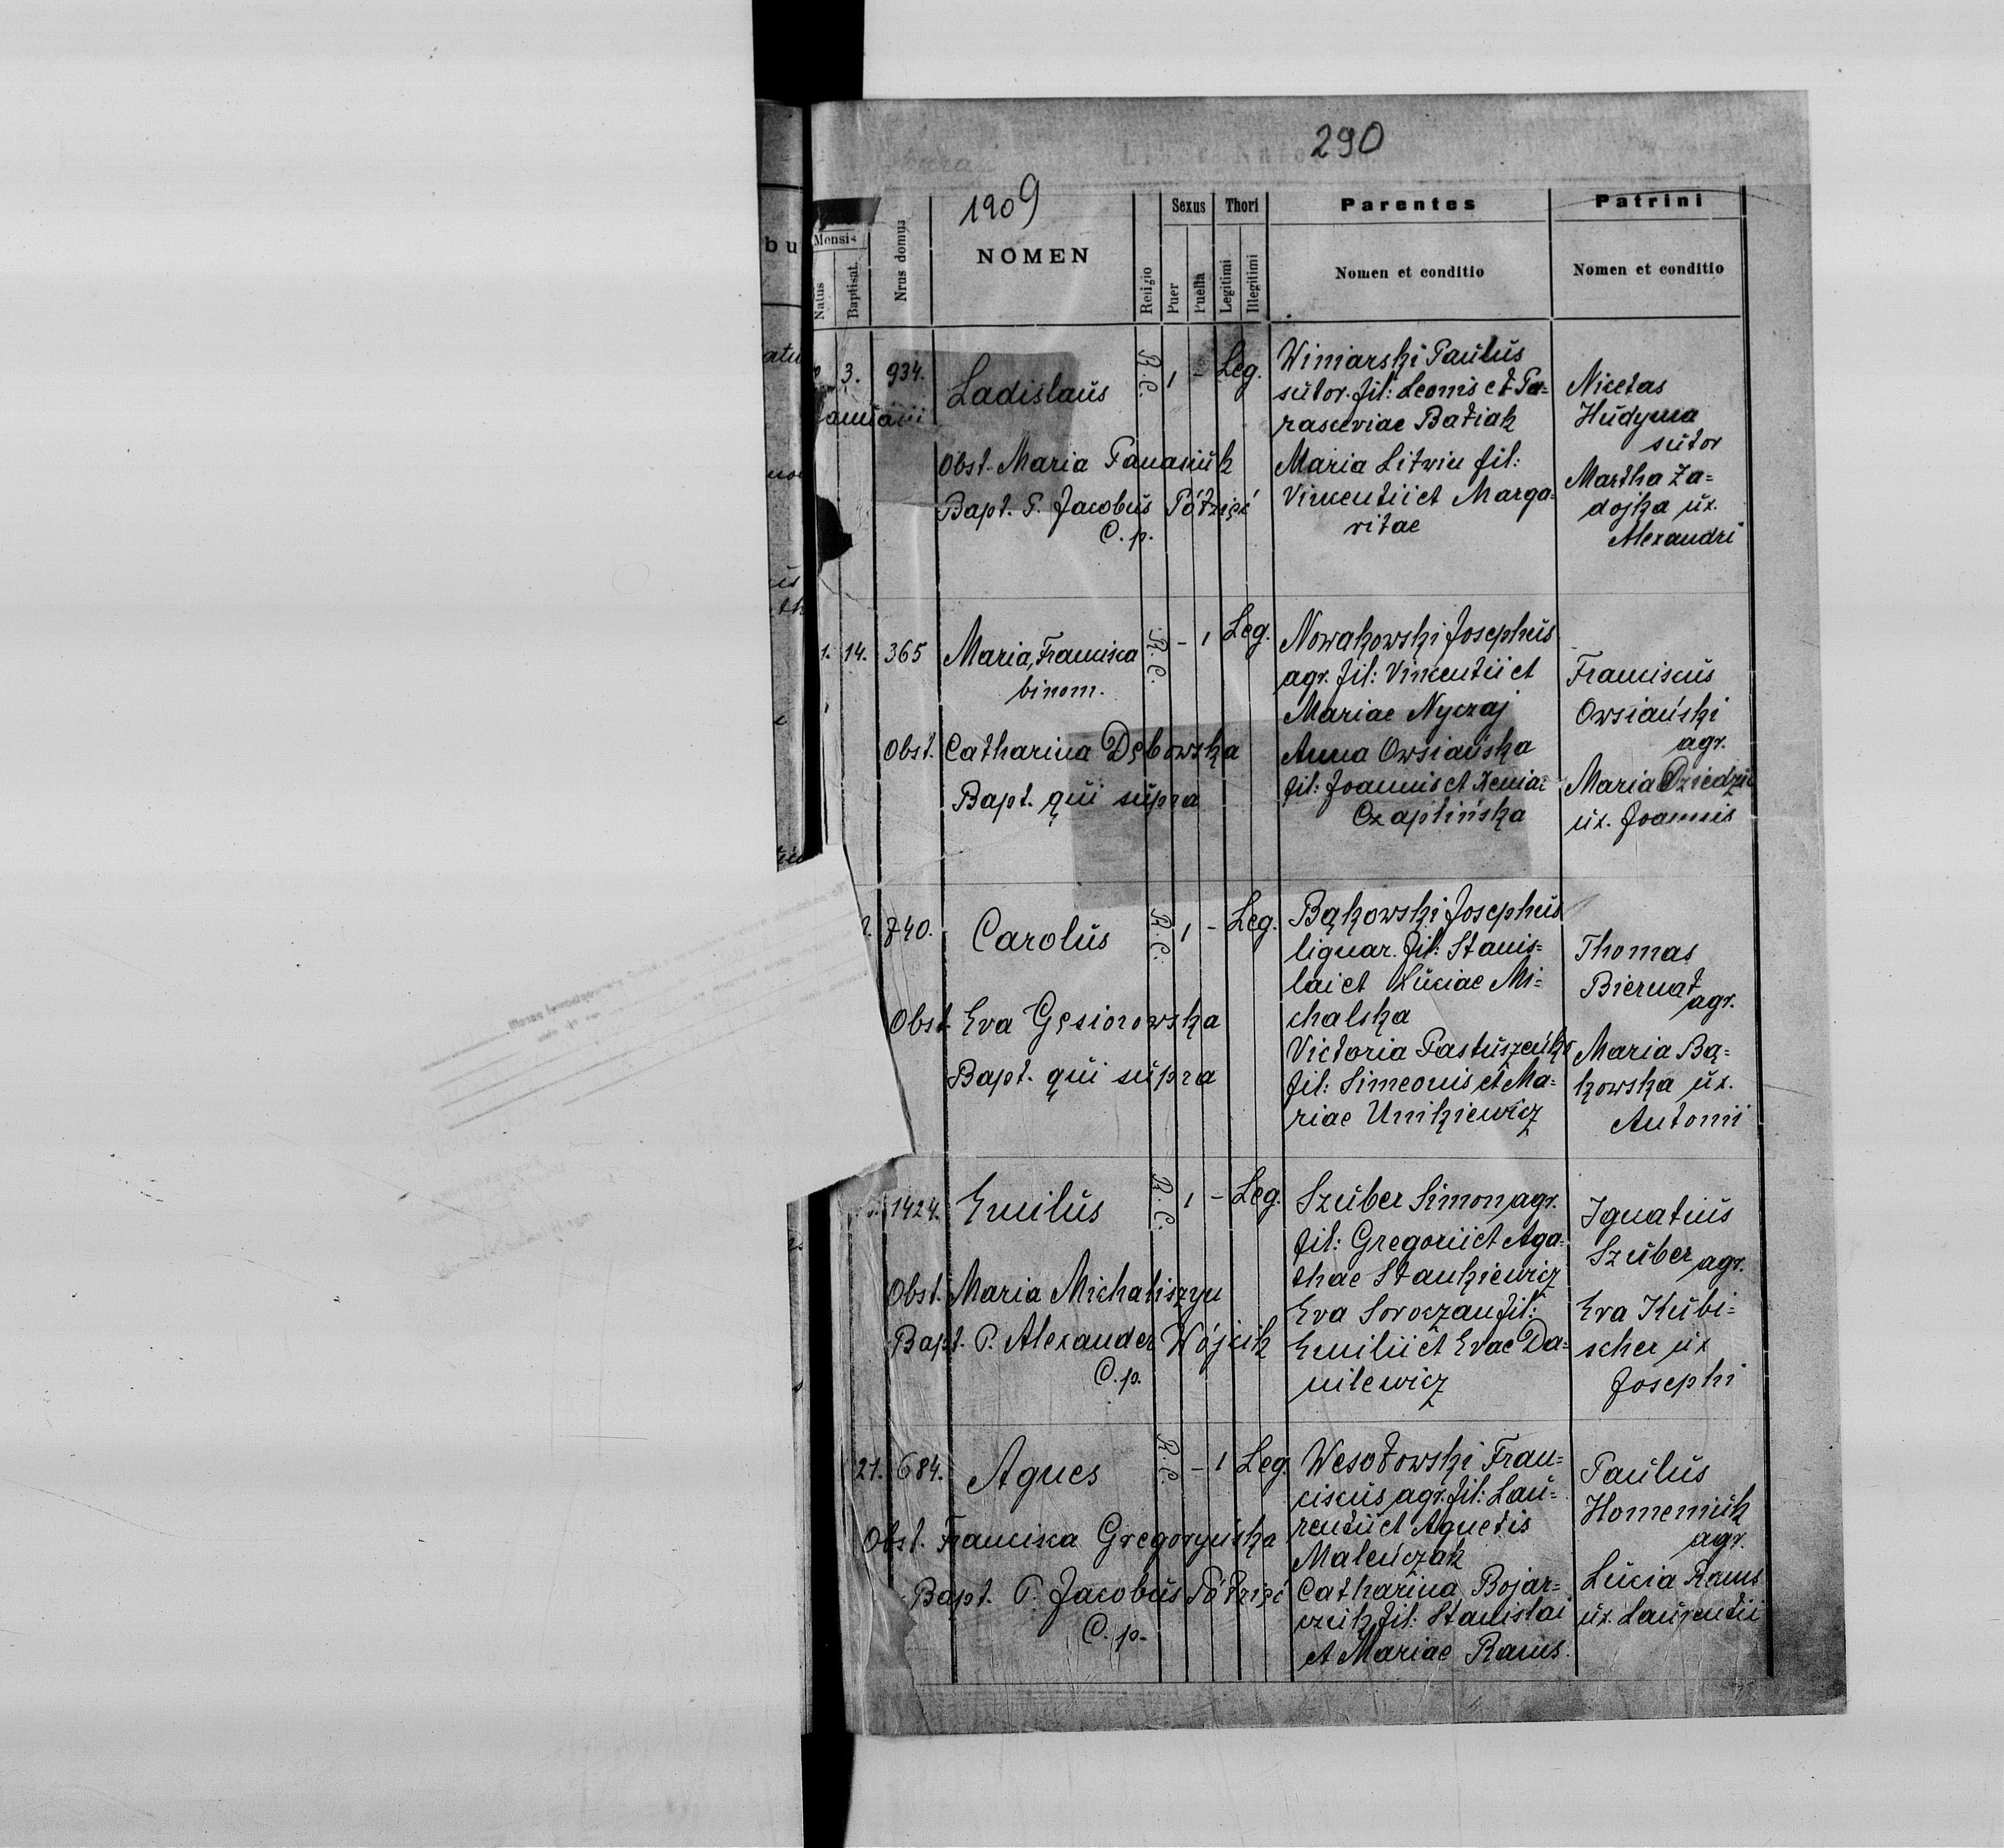 290
1909
Mensis
Natus
Baptisat.
Nrus domus
NOMEN
Religio
Sexus
Puer
Puella
Thori
Legitimi
Illegitimi
Parentes
Nomen et conditio
Patrini
Nomen et conditio
3. 934. Ladislaus R. C. 1 - Leg.
Januarii
Obst. Maria Panasiuk
Bapt. P. Jacobus Półzięć
C. p.
Winiarski Paulus
sutor. fil: Leonis et Pa=
rasceviae Batiah
Maria Litwin fil:
Vincentii et Marga=
ritae
Nicetas
Hudyma
sutor
Martha Za=
dojka ux.
Alexandri
1. 14. 365 Maria, Francisca R. C. - 1 Leg.
binom.
Obst. Catharina Dębowska
Bapt. qui supra
Nowakowski Josephus
agr. fil: Vincentii et
Mariae Nyczaj
Anna Owsiańska
fil: Joannis et Xeniae
Czaplińska
Franciscus
Owsiański
agr.
Maria
ux. Joannis
740. Carolus R. C. 1 - Leg.
Obst. Eva Gęsiorowska
Bapt. qui supra
Bąkowski Josephus
lignar. fil: Stanis=
lai et Luciae Mi=
chalska
Victoria Pastuszeńko
fil: Simeonis et Ma=
riae Unikiewicz
Thomas
Biernat
agr.
Maria Bą=
kowska ux.
Antonii
1424. Emilus R. C. 1 - Leg.
Obst. Maria Michaliszyn
Bapt. P. Alexander Wójcik
C. p.
Szuber Simon agr.
fil: Gregorii et Aga=
thae Stankiewicz
Eva Soroczan fil:
Emilii et Evae Da=
nilewicz
Ignatius
Szuber agr.
Eva Kubi=
scher ux
Josephi
21. 684. Agnes R. C. - 1 Leg.
Obst. Francisca Gregoryńska
Bapt. P. Jacobus Półzięć
C. p.
Wesołowski Fran=
ciscus agr. fil: Lau=
rentii et Agnetis
Maleńczak
Catharina Bojar=
czuk fil: Stanislai
et Mariae Raus.
Paulus
Homeniuk
agr.
Lucia Raus
ux. Laurentii